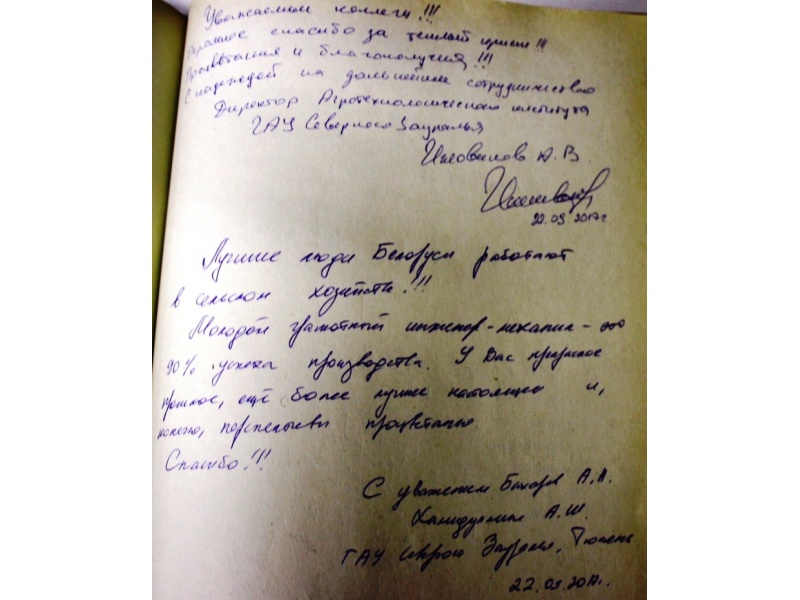 Уважаемые коллеги!!!
Огромное спасибо за теплый прием!!!
Процветания и благополучия!!!
С надеждой на дальнейшее сотрудничество
Директор Агротехнологического института
ГАУ Северного Зауралья
А.В.
22.03.2017г
Лучшие люди Беларуси работают
в сельском хозяйстве!!!
Молодой грамотный инженер-механик - это
90% успеха производства. У Вас прекрасное
прошлое, ещё более лучшее настоящее и,
конечно, перспективы процветания.
Спасибо!!!
С уважением А.А.
А.Ш.
ГАУ Северного Зауралья, Тюмень
22.03.2017г.